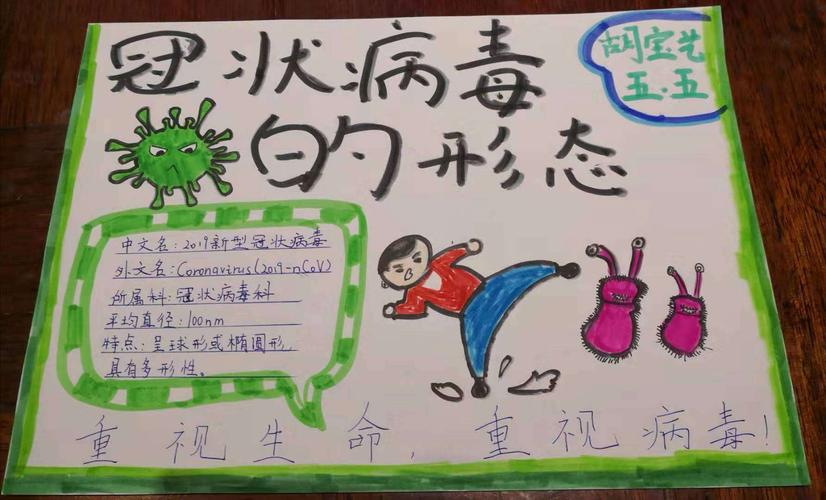 冠状病毒
的形态
胡宝艺
五.五
中文名:2019新型冠状病毒
外文名:Coronavirus(2019-nCoV)
所属科:冠状病毒科
平均直径:100nm
特点:呈球形或椭圆形,
具有多形性。
重视生命,重视病毒!